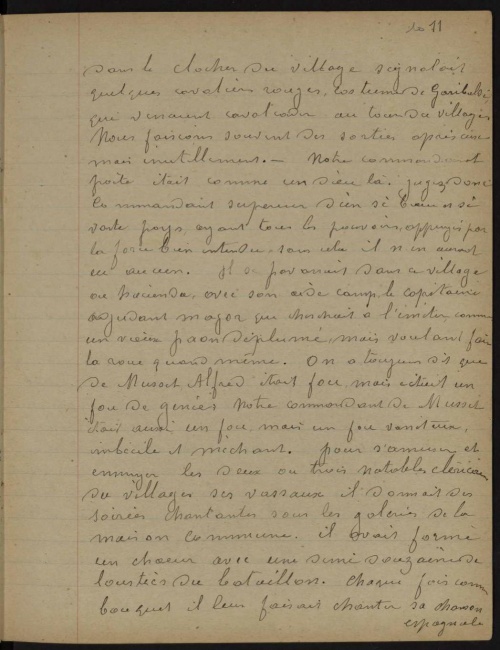 11
dans le clocher du village signalait
quelques cavaliers rouges, costume de Garibaldi
qui venaient cavalcader autour du village
Nous faisions souvent des sorties après eux
mais inutilement. — Notre commandant
poète était comme un dieu là. jugez donc
Commandait superieur d'un si beau et si
vaste pays, ayant tous les pouvoirs, appuyés par
la force bien entendu, sans cela il n'en aurait
eu aucun. Il se pavanait dans ce village
ou hocienda, avec son aide camp, le capitaine
adjudant major qui cherchait à l'imiter comme
un vieux paon déplumé, mais voulant faire
la roue quand même. On a toujours dit que
de Musset Alfred était fou, mais c'était un
fou de genies Notre commandant de Musset
était aussi un fou, mais un fou vaniteux,
imbécile et méchant. pour s'amuser et
ennuyer les deux ou trois notables cléricaux
du villages ses vassaux il donnait des
soirées chantantes sous les galeries de la
maison commune. il avait formé
un choeur avec une demi douzaine de
loustics du bataillon. Chaque fois comme
bouquet il leur faisait chanter sa chanson
espagnole